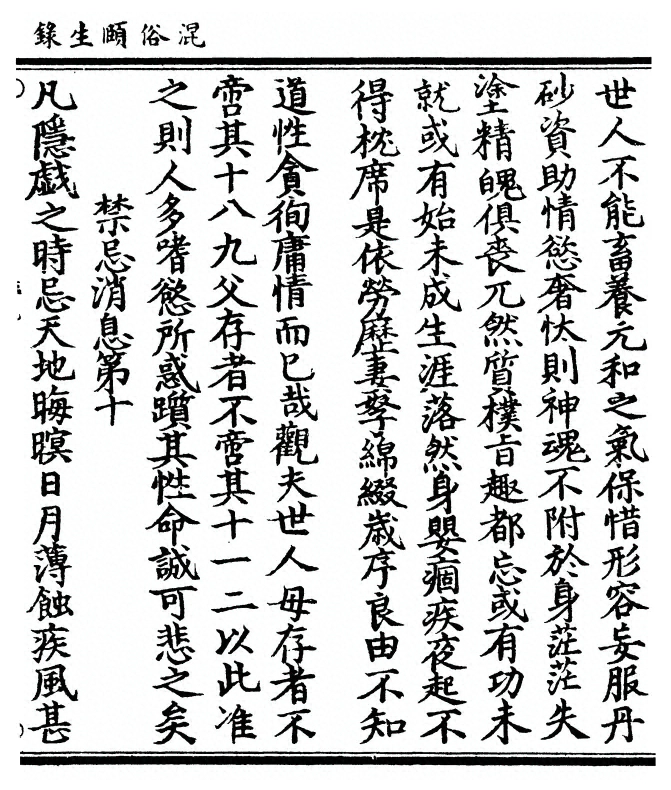 混俗頤生錄
世人不能畜養元和之氣保惜形容妄服丹
砂資助情慾奢忲則神魂不附於身茫茫失
塗精魄俱喪兀然質樸旨趣都忘或有功未
就或有始未成生涯落然身嬰痼疾夜起不
得枕席是依勞歷妻孥綿綴歲序良由不知
道性貪徇庸情而已哉觀夫世人母存者不
啻其十八九父存者不啻其十一二以此准
之則人多嗜慾所惑躓其性命誠可悲之矣
禁忌消息第十
凡隱戲之時忌天地晦暝日月薄蝕疾風甚